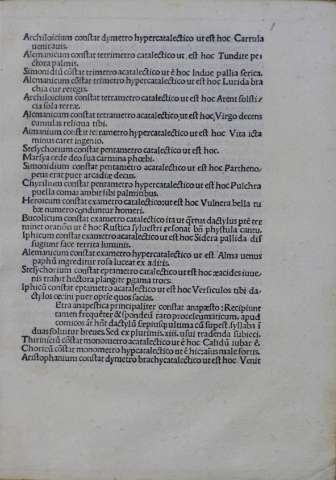 Archiloicium constat dymetro hypercatalectico ut est hoc Carrula
uenit auis.
Alemanicum constat tetrimetro catalectico ut est hoc Tundite pe/
ctora palmis.
Simonidiū cōstat trimetro acatalectico ut ē hoc Indue pallia serica.
Alemanicum constat trimetro hypercatalectico ut est hoc Lucida bra
chia cur tetegis.
Archiloicium constat tetrametro catalectico ut est hoc Arent solsti/
cia sola terræ.
Alemanicum constat tetrametro acatalectico ut est hoc Virgo decens
cumulus reliqua tibi.
Aimanium constat tetrametro hypercatalectico ut est hoc Vita icta
minus caret ingenio.
Stesychorium constat pentametro catalectico ut est hoc.
Marsya cede deo sua carmina phœbi.
Simonidium constat pentametro acatalectico ut est hoc Parthenope
eus erat puer arcadiæ decus.
Chyrilium constat pentametro hypercatalectico ut est hoc Pulchra
puella comas ambit sibi palmitibus.
Heroicum constat exametro catalectico ut est hoc Vulnera bella tu
bæ numero conduntur homeri.
Bucolicum constat exametro catalectico ita ut dactylus
minet orationū ut ē hoc Rustica syluestri resonat bñ phystula cantu.
Iphicum constat exametro acatalectico ut est hoc Sidera pallida dif
fugiunt face territa luminis.
Alemanicum constat exametro hypercatalectico ut est Alma uenus
paphū ingreditur rosa luceat ex aditis
Stesychorium constat eptametro catalectico ut est hoc æacides iuue/
nis trahit hectora plangite pgama troes.
Iphicū constat eptametro acatalectico ut est hoc Versiculos tibi da/
ctylos cecini puer optie quos facias.
Etra anapestica principaliter constat anapæsto: Recipiunt
tamen frequēter & spondeū raro proceleumaticum. apud
comicos at hñt dactylū sępius ultima cū supest syllaba ī
duas soluitur breues. Sed ex plurimis .xiii. usui tradenda subieci.
Thirinicū cōstat monometro acatalectico ut ē hoc Calidū iubar ē.
Choricū cōstat monometro hypercatalectico ut ē hic: auis male fortis.
Aristophanium constat dymetro brachycatalectico ut est hoc Venit